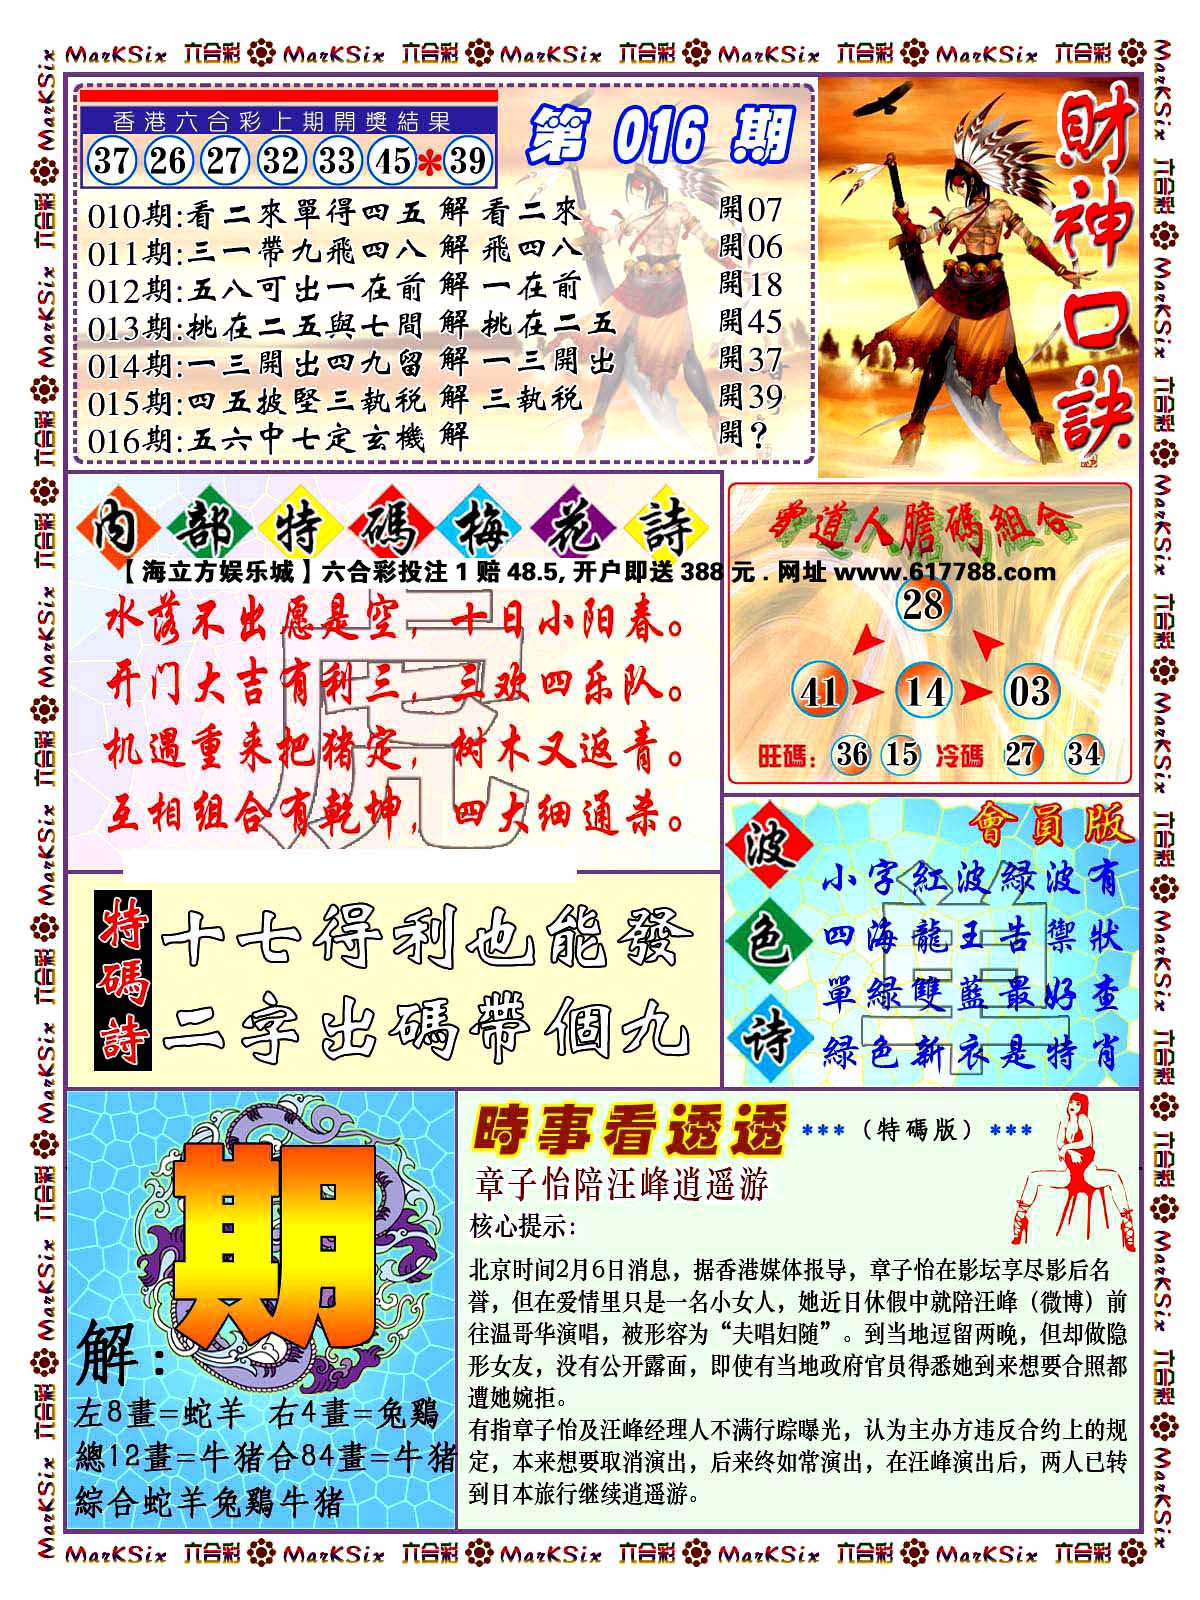 MarKSix 六合彩 MarKSix 六合彩 MarKSix 六合彩 MarKSix 六合彩 MarKSix 六合彩
香港六合彩上期開獎結果
37 26 27 32 33 45 * 39
第 016 期
010期:看二來單得四五 解 看二來 開07
011期:三一帶九飛四八 解 飛四八 開06
012期:五八可出一在前 解 一在前 開18
013期:挑在二五與七間 解 挑在二五 開45
014期:一三開出四九留 解 一三開出 開37
015期:四五披堅三執税 解 三執税 開39
016期:五六中七定玄機 解 開?
財神口訣
内部特碼梅花詩
道人膽碼組合
【海立方娱乐城】六合彩投注1赔48.5,开户即送388元.网址www.617788.com
水落不出愿是空，十日小阳春。
开门大吉有利三，三欢四乐队。
机遇重来把猪定，树木又返青。
互相组合有乾坤，四大细通杀。
28
41 14 03
旺碼: 36 15 冷碼 27 34
特碼詩
十七得利也能發
二字出碼帶個九
波色诗
會員版
小字紅波綠波有
四海龍王告禦狀
單綠雙藍最好查
綠色新衣是特肖
期
解:
左8畫=蛇羊 右4畫=兔鷄
總12畫=牛猪合84畫=牛猪
綜合蛇羊兔鷄牛猪
時事看透透 ***（特碼版）***
章子怡陪汪峰逍遥游
核心提示:
北京时间2月6日消息，据香港媒体报导，章子怡在影坛享尽影后名
誉，但在爱情里只是一名小女人，她近日休假中就陪汪峰（微博）前
往温哥华演唱，被形容为“夫唱妇随”。到当地逗留两晚，但却做隐
形女友，没有公开露面，即使有当地政府官员得悉她到来想要合照都
遭她婉拒。
有指章子怡及汪峰经理人不满行踪曝光，认为主办方违反合约上的规
定，本来想要取消演出，后来终如常演出，在汪峰演出后，两人已转
到日本旅行继续逍遥游。
MarKSix 六合彩 MarKSix 六合彩 MarKSix 六合彩 MarKSix 六合彩 MarKSix 六合彩